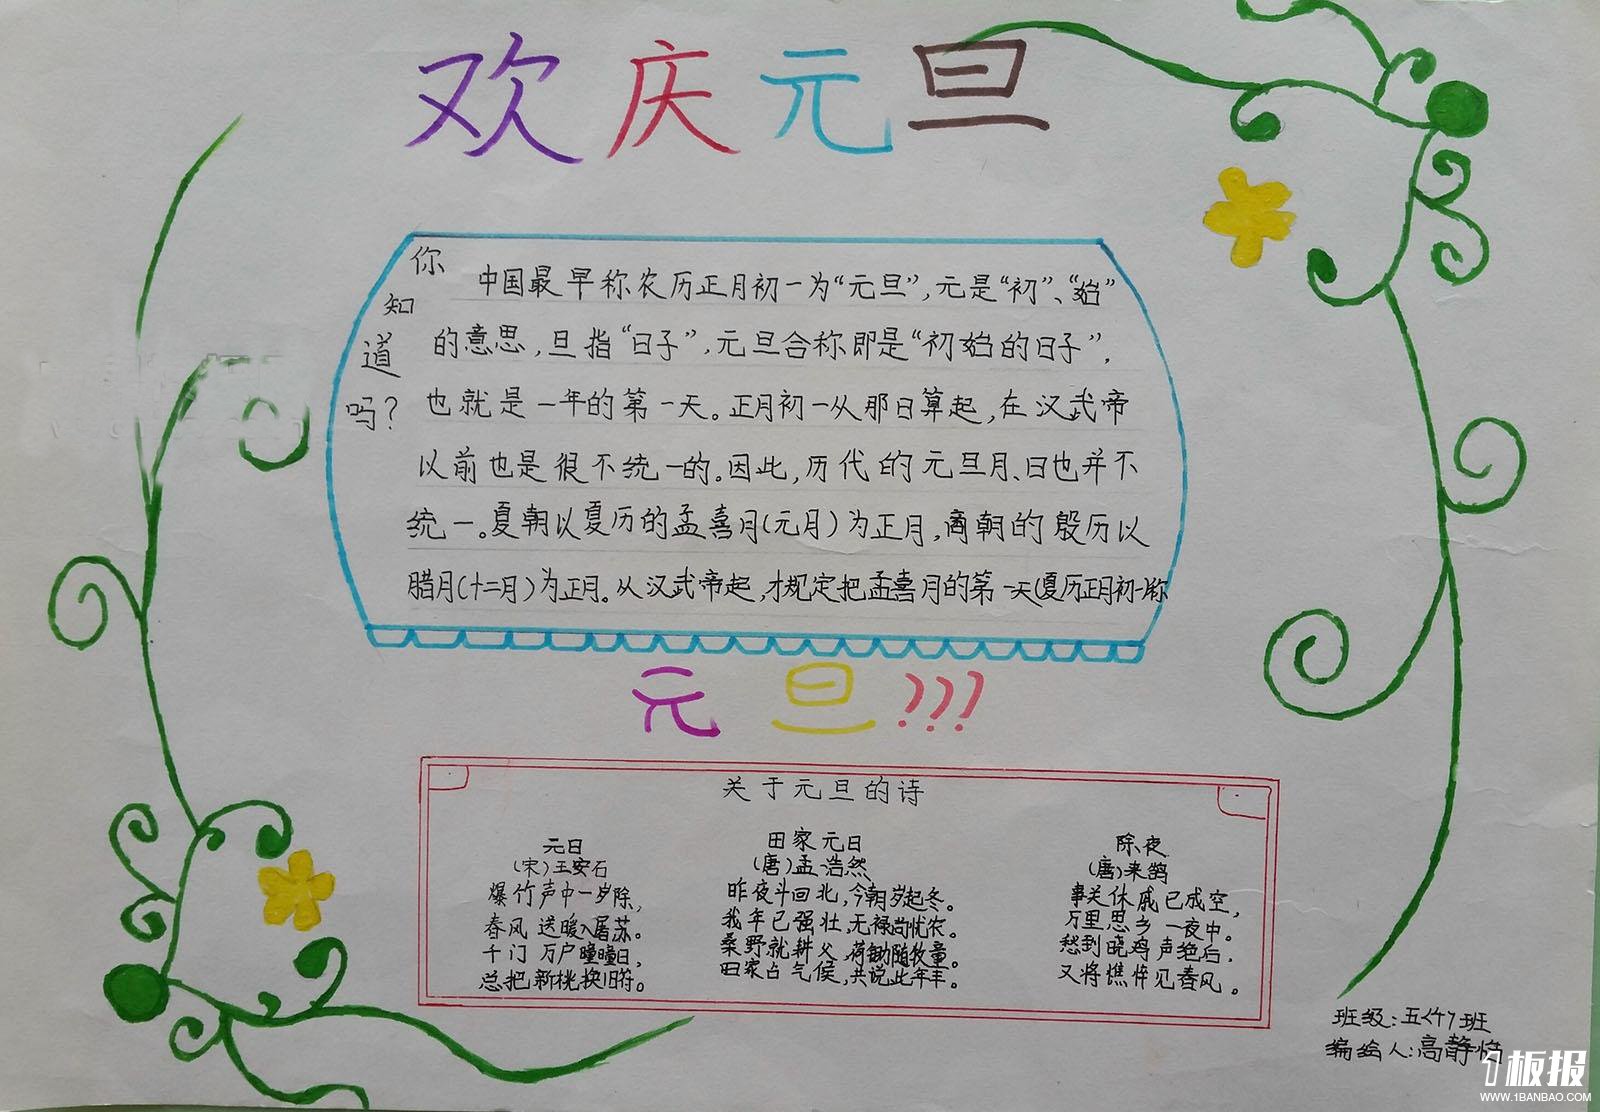 欢庆元旦
你知道吗?
中国最早称农历正月初一为“元旦”,元是“初”、“始”
的意思,旦指“日子”,元旦合称即是“初始的日子”,
也就是一年的第一天。正月初一从那日算起,在汉武帝
以前也是很不统一的。因此,历代的元旦月、日也并不
统一。夏朝以夏历的孟喜月(元月)为正月,商朝的殷历以
腊月(十二月)为正月。从汉武帝起,才规定把孟喜月的第一天(夏历正月初一)称
元旦???
关于元旦的诗
元日
(宋)王安石
爆竹声中一岁除,
春风送暖入屠苏。
千门万户曈曈日,
总把新桃换旧符。
田家元日
(唐)孟浩然
昨夜斗回北,今朝岁起冬。
我年已强壮,无禄尚忧农。
桑野就耕父,荷锄随牧童。
田家占气候,共说此年丰。
除夜
(唐)来鹄
事关休戚已成空,
万里思乡一夜中。
愁到晓鸡声绝后,
又将憔悴见春风。
班级:五(7)班
编绘人:高静怡
1板报
WWW.1BANBAO.COM